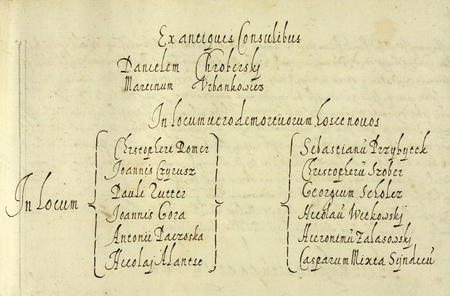 Ex antiquis Consulibus
Danielem Chroberskj
Martinum Vrbankowicz
In locum vero demortuorum hosce nouos
In Locum
Christopheri Romer
Joannis Czyrusz
Pauli Zutter
Joannis Gora
Antonii Paczoska
Nicolaj Alantse
Sebastianū Przybyłek
Christopherū Szober
Georgium Scholcz
Nicolaū Wetkowskj
Hieronimū Zalasowskj
Casparum Mixta Sijndicū